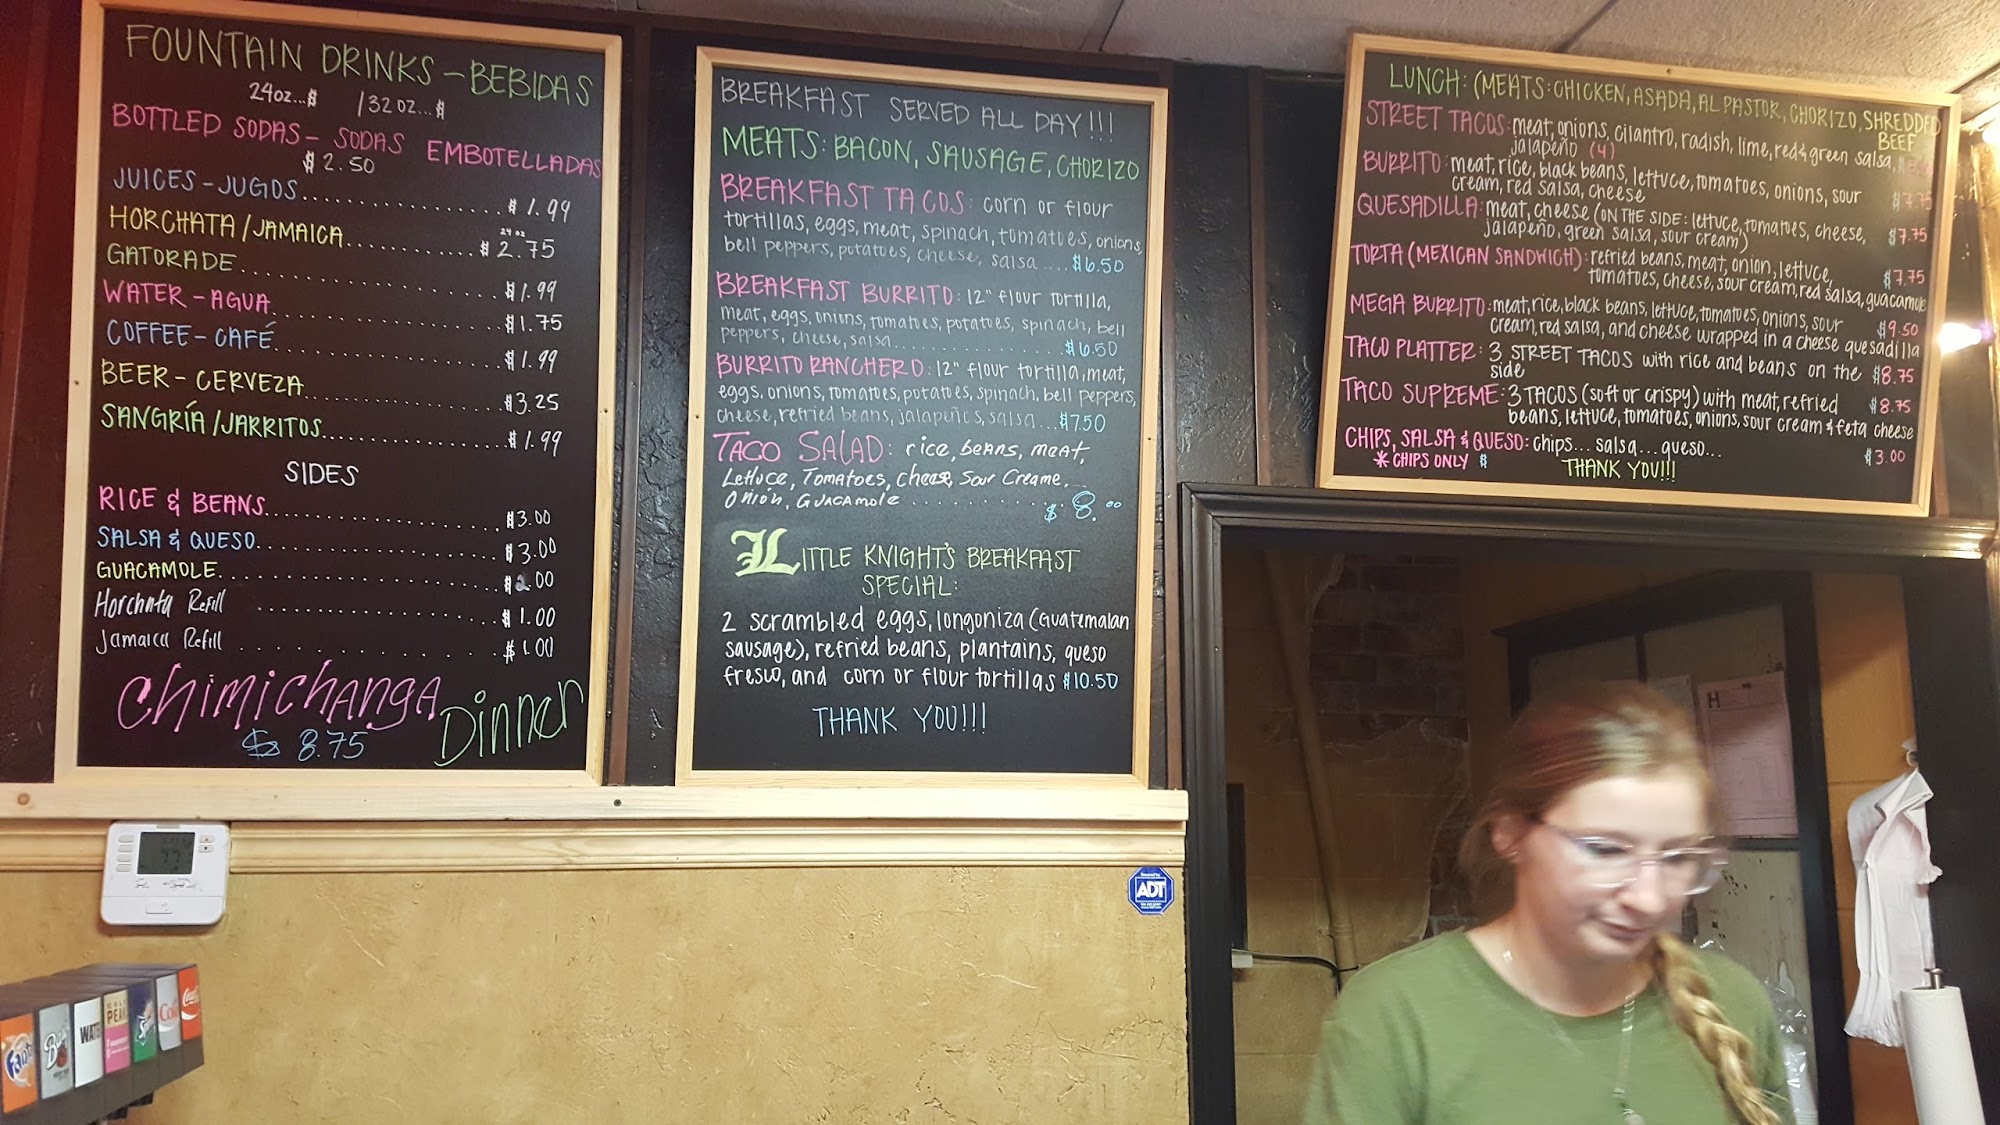 FOUNTAIN DRINKS - BEBIDAS
24oz...$ / 32oz...$
BOTTLED SODAS - SODAS EMBOTELLADAS
$2.50
JUICES - JUGOS................$1.99
HORCHATA/JAMAICA..........24oz $2.75
GATORADE......................$1.99
WATER - AGUA..................$1.75
COFFEE - CAFÉ.................$1.99
BEER - CERVEZA................$3.25
SANGRÍA/JARRITOS..............$1.99
SIDES
RICE & BEANS..................$3.00
SALSA & QUESO.................$3.00
GUACAMOLE.....................$2.00
Horchata Refill ..................$1.00
Jamaica Refill ..................$1.00
CHIMICHANGA Dinner
$8.75
BREAKFAST SERVED ALL DAY!!!
MEATS: BACON, SAUSAGE, CHORIZO
BREAKFAST TACOS: corn or flour
tortillas, eggs, meat, spinach, tomatoes, onions,
bell peppers, potatoes, cheese, salsa ....$6.50
BREAKFAST BURRITO: 12" flour tortilla,
meat, eggs, onions, tomatoes, potatoes, spinach, bell
peppers, cheese, salsa....................$6.50
BURRITO RANCHERO: 12" flour tortilla, meat,
eggs, onions, tomatoes, potatoes, spinach, bell peppers,
cheese, refried beans, jalapeños, salsa ...$7.50
TACO SALAD: rice, beans, meat,
Lettuce, Tomatoes, cheese, Sour Creame.
Onion, Guacamole ............ $8.00
LITTLE KNIGHT'S BREAKFAST
SPECIAL:
2 scrambled eggs, longoniza (Guatemalan
sausage), refried beans, plantains, queso
fresco, and corn or flour tortillas $10.50
THANK YOU!!!
LUNCH: (MEATS: CHICKEN, ASADA, AL PASTOR, CHORIZO, SHREDDED
BEEF
STREET TACOS: meat, onions, cilantro, radish, lime, red & green salsa,
jalapeño (4)
BURRITO: meat, rice, black beans, lettuce, tomatoes, onions, sour
cream, red salsa, cheese $7.75
QUESADILLA: meat, cheese (ON THE SIDE: lettuce, tomatoes, cheese,
jalapeño, green salsa, sour cream) $7.75
TORTA (MEXICAN SANDWICH): refried beans, meat, onion, lettuce, $7.75
tomatoes, cheese, sour cream, red salsa, guacamole
MEGA BURRITO: meat, rice, black beans, lettuce, tomatoes, onions, sour $9.50
cream, red salsa, and cheese wrapped in a cheese quesadilla
TACO PLATTER: 3 STREET TACOS with rice and beans on the $8.75
side
TACO SUPREME: 3 TACOS (soft or crispy) with meat, refried $8.75
beans, lettuce, tomatoes, onions, sour cream & feta cheese
CHIPS, SALSA & QUESO: chips... salsa... queso... $3.00
* CHIPS ONLY $
THANK YOU!!!
ADT
Fanta
Barq's
WATER
GOLD PEAK
Sprite
Coke
Coca-Cola